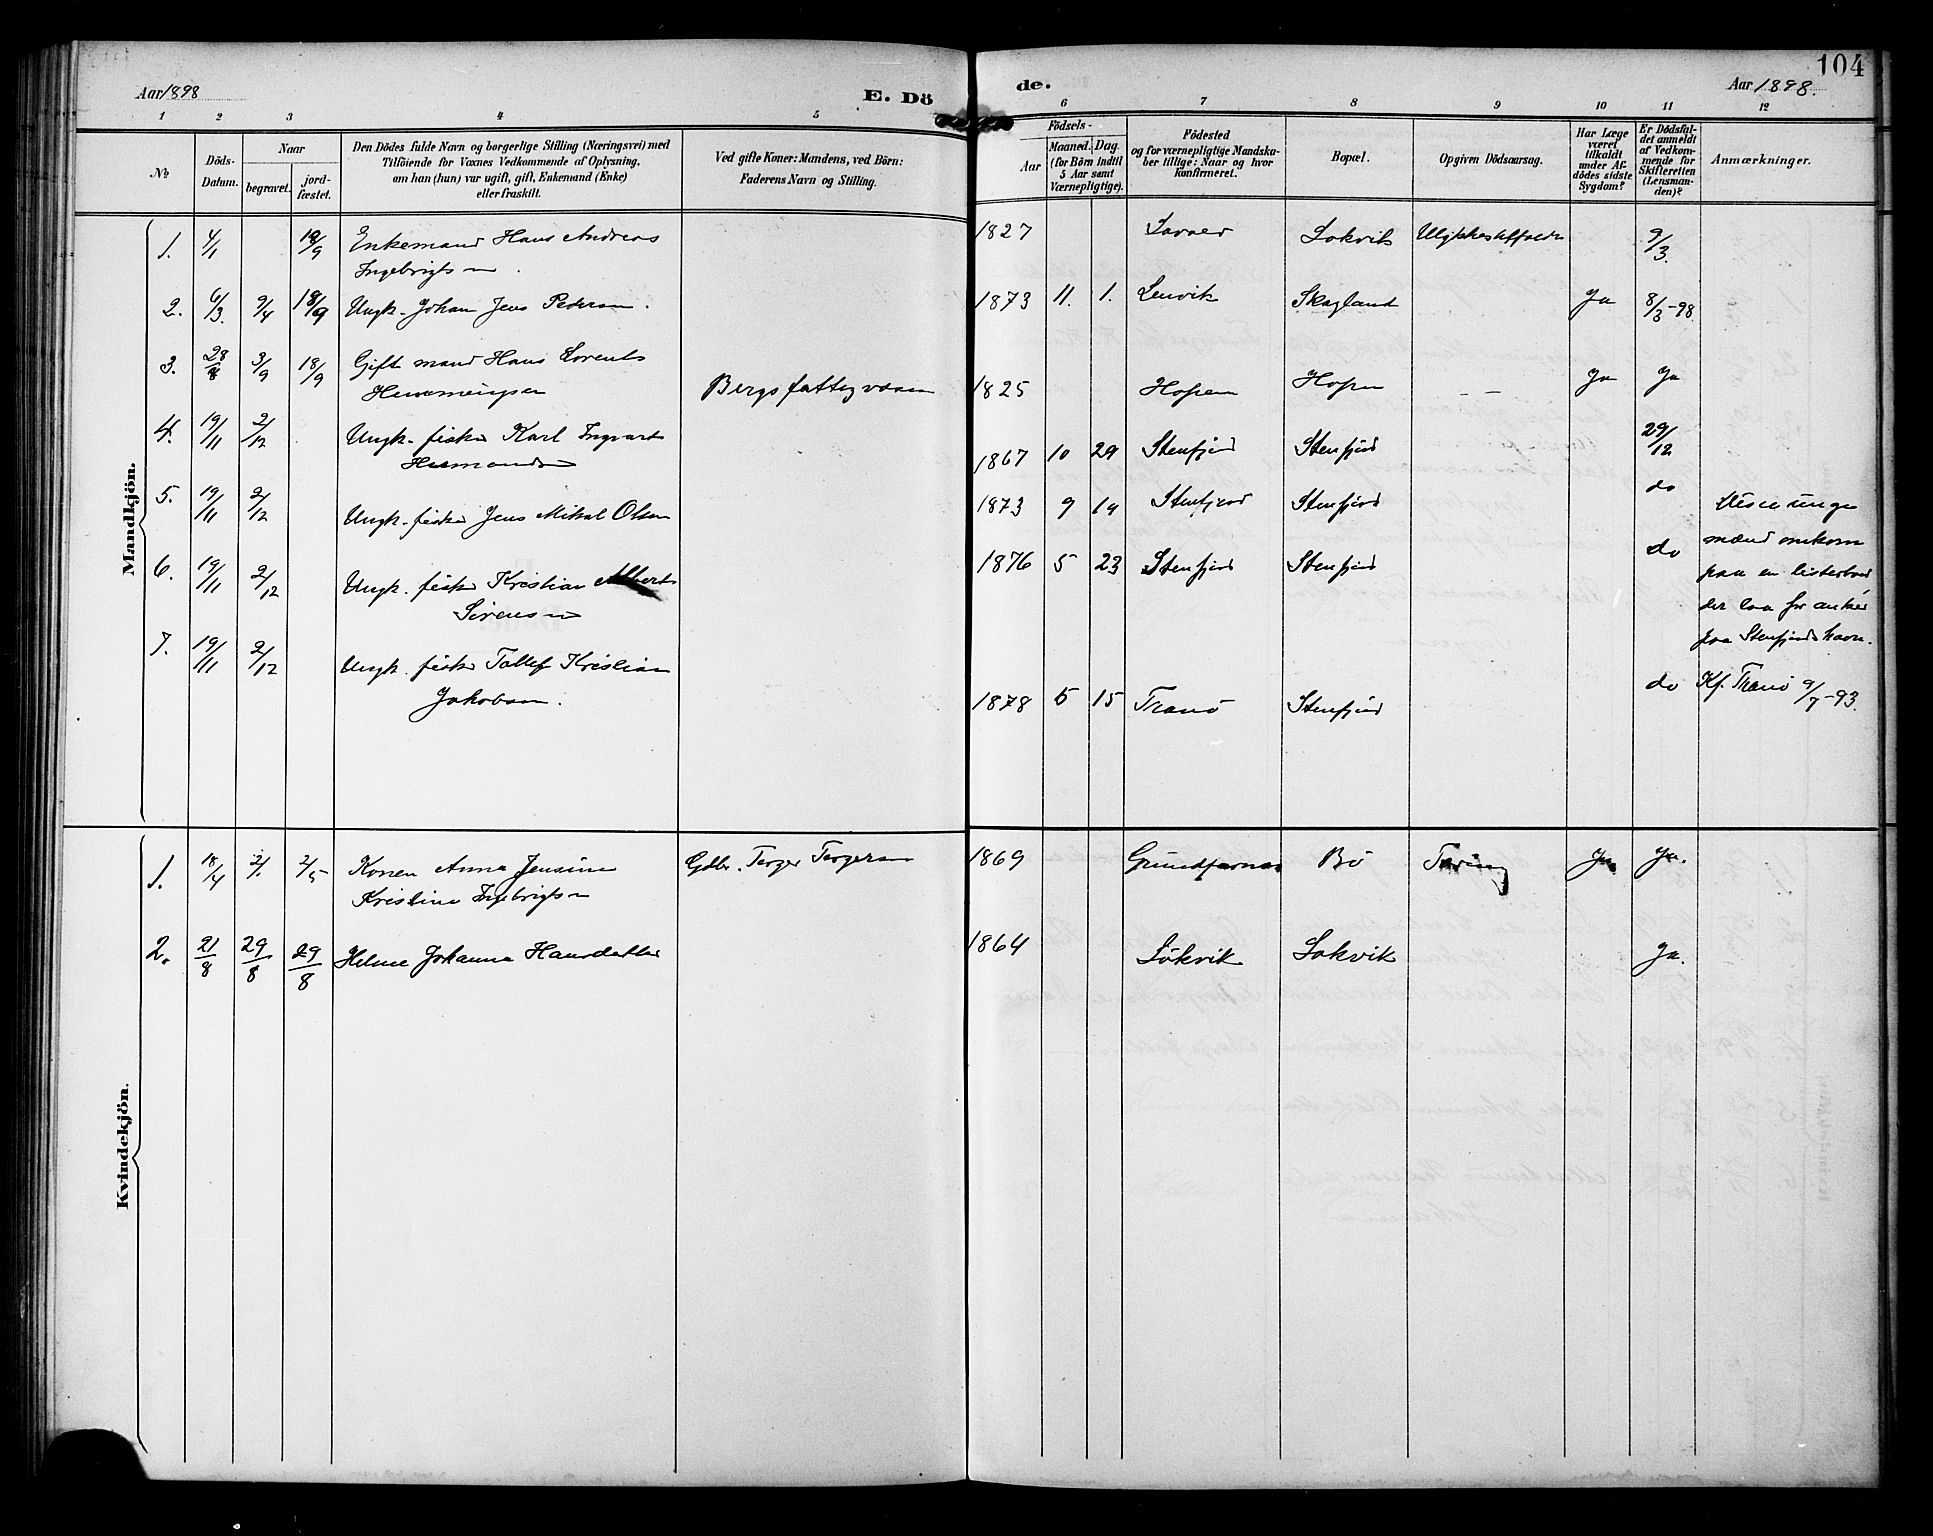 104
Aar 1898
E. Dö
de.
Aar 1898.
1 2 3 4 5 6 7 8 9 10 11 12
No
Döds-
Datum.
Naar
begravet.
jord-
fæstet.
Den Dödes fulde Navn og borgerlige Stilling (Næringsvei) med
Tilföiende for Voxnes Vedkommende af Oplysning,
om han (hun) var ugift, gift, Enkemand (Enke)
eller fraskilt.
Ved gifte Koner: Mandens, ved Börn:
Faderens Navn og Stilling.
Födsels-
Aar
Maaned. Dag.
(for Börn indtil
5 Aar samt
Værnepligtige).
Födested
og for værnepligtige Mandska-
ber tillige: Naar og hvor
konfirmeret.
Bopæl.
Opgiven Dödsaarsag.
Har Læge
været
tilkaldt
under Af-
dödes sidste
Sygdom?
Er Dödsfal-
det anmeldt
af Vedkom-
mende for
Skifteretten
(Lensman-
den)?
Anmærkninger.
Mandkjön.
1. 4/1 Enkemand Hans Andreas 1827 9/3.
Ingebrigtsen
2. 6/3. 9/4 18/9 Ungk. Johan Jens Pedersen. 1873 11. 1. Lenvik Skagland Ja 8/3-98
3. 28/8 3/9 18/9 Gift mand Hans Lorents 1825 Hopen Hopen – Ja Ja
Henningsen Bergs fattigvæsen
4. 19/11 2/12 Ungk. fisker Karl Ingvart 1867 10 29 Stenfjord Stenfjord 29/12
5. 19/11 2/12 Ungk. fisker Jens Mikal Olsen 1873 9 19 Stenfjord Stenfjord do
6. 19/11 2/12 Ungk. fisker Kristian Albert 1876 5 23 Stenfjord Stenfjord do
Sörensen
7. 19/11 2/12 Ungk. fisker Tollef Kristian
Jakobsen. 1878 5 15 Tranö Stenfjord do
Disse unge
mænd omkom
paa en listerbaad
der laa for anker
paa Stenfjords havn.
Kf. Tranö 9/7-93.
Kvindekjön.
1. 18/4 2/5 Konen Anna Jensine Gdbr. Torger Torgersen 1869 Grundfarnes Bö Tæring Ja Ja.
Kristine Ingebrigtsen
2. 21/8 29/8 29/8 Helene Johanna Hansdatter 1864 Lökvik Lökvik Ja.